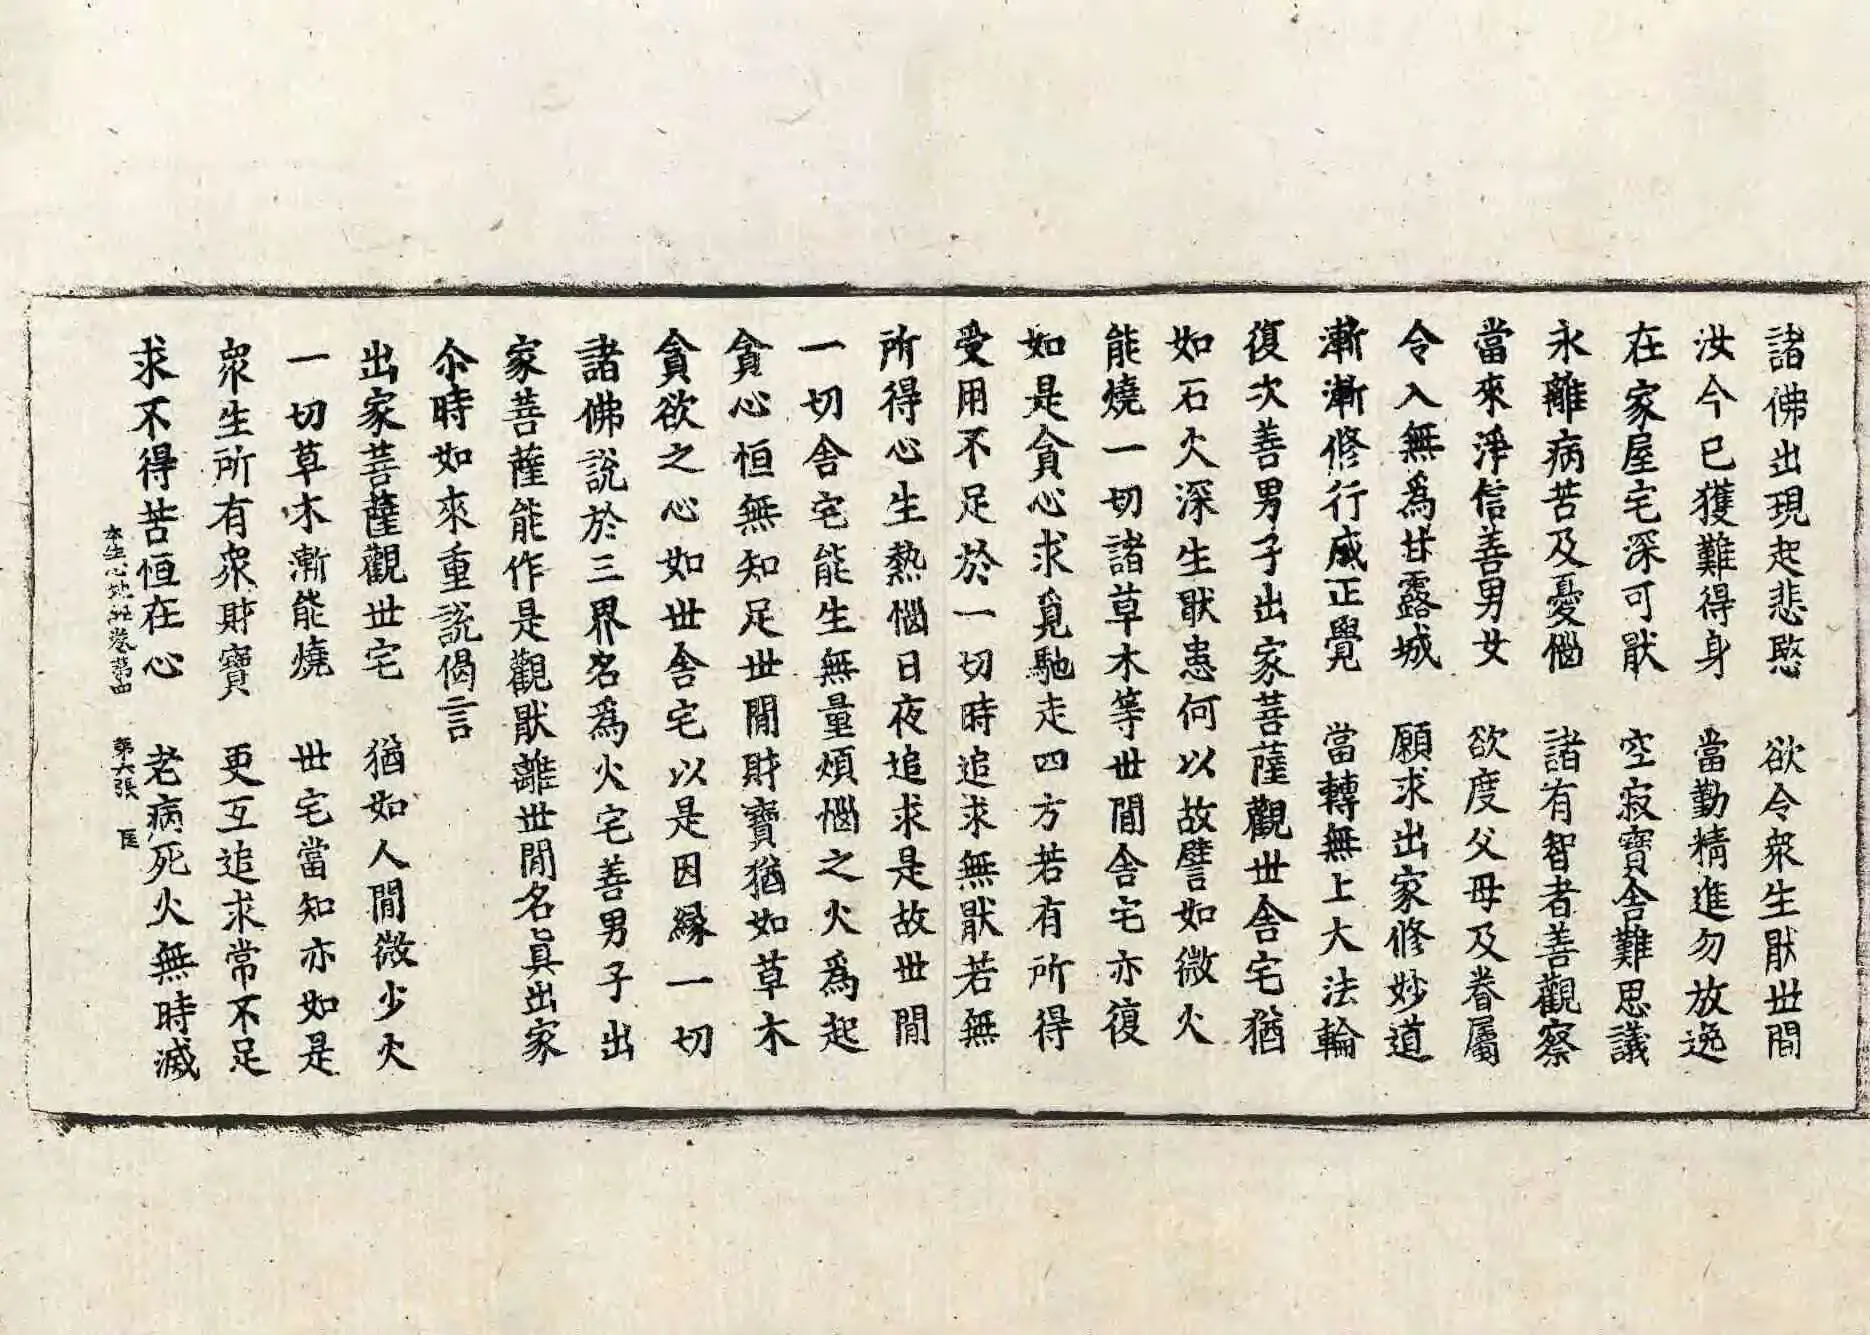 諸佛出現起悲愍　欲令衆生猒世間
汝今已獲難得身　當勤精進勿放逸
在家屋宅深可猒　空寂寶舍難思議
永離病苦及憂惱　諸有智者善觀察
當來淨信善男女　欲度父母及眷屬
令入無爲甘露城　願求出家修妙道
漸漸修行成正覺　當轉無上大法輪
復次善男子出家菩薩觀世舍宅猶
如石火深生猒患何以故譬如微火
能燒一切諸草木等世間舍宅亦復
如是貪心求覓馳走四方若有所得
受用不足於一切時追求無猒若無
所得心生熱惱日夜追求是故世間
一切舍宅能生無量煩惱之火爲起
貪心恒無知足世間財寶猶如草木
貪欲之心如世舍宅以是因縁一切
諸佛說於三界名爲火宅善男子出
家菩薩能作是觀猒離世間名眞出家
尒時如來重說偈言
出家菩薩觀世宅　猶如人間微少火
一切草木漸能燒　世宅當知亦如是
衆生所有衆財寶　更互追求常不足
求不得苦恒在心　老病死火無時滅
本生心地經卷第四　第六張　匡